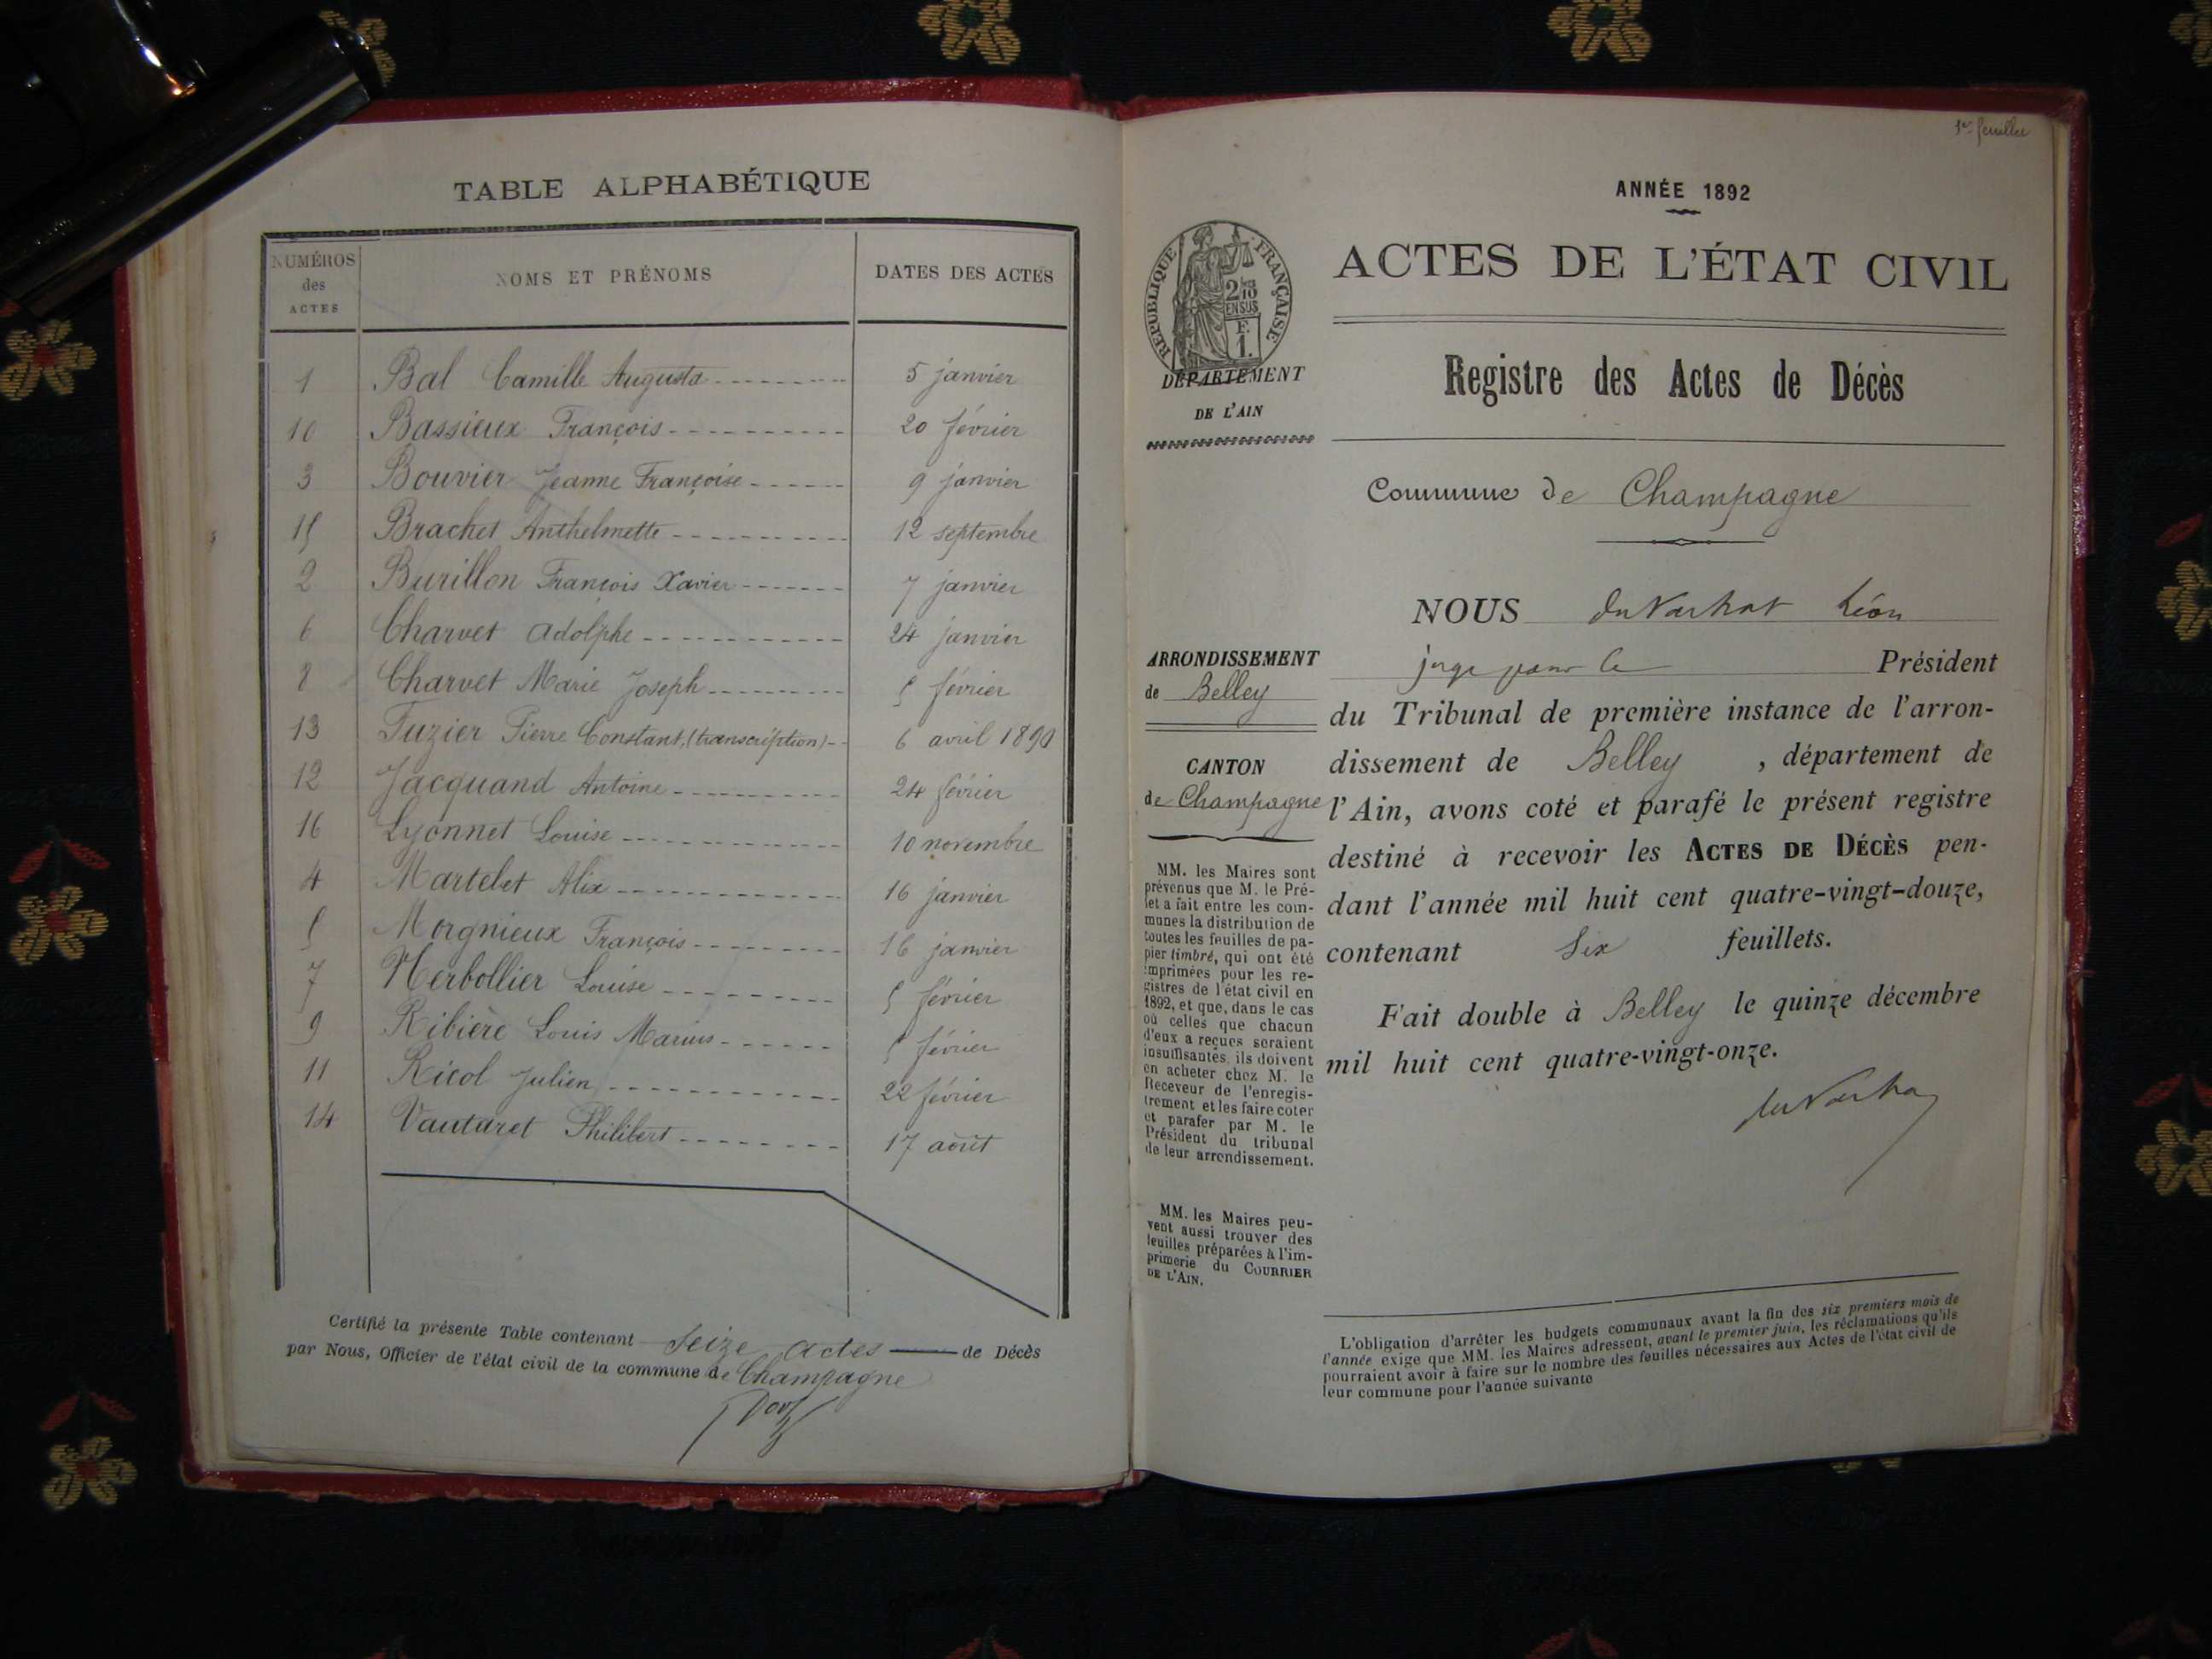 TABLE ALPHABÉTIQUE
NUMÉROS des ACTES
NOMS ET PRÉNOMS
DATES DES ACTES
1 Bal Camille Augusta 5 janvier
10 Bassieux François 20 février
3 Bouvier Jeanne Françoise 9 janvier
15 Brachet Anthelmette 12 septembre
2 Burillon François Xavier 7 janvier
6 Charvet Adolphe 24 janvier
8 Charvet Marie Joseph 5 février
13 Fuzier Pierre Constant, (transcription) 6 avril 1890
12 Jacquand Antoine 24 février
16 Lyonnet Louise 10 novembre
4 Martelet Alix 16 janvier
5 Morgnieux François 16 janvier
7 Nerbollier Louise 5 février
9 Ribière Louis Marius 5 février
11 Ricol Julien 22 février
14 Vautaret Philibert 17 août
Certifié la présente Table contenant Seize actes de Décès
par Nous, Officier de l'état civil de la commune de Champagne
1er feuillet
ANNÉE 1892
ACTES DE L'ÉTAT CIVIL
RÉPUBLIQUE FRANÇAISE
2/10 EN SUS
F. 1.
DÉPARTEMENT
DE L'AIN
Registre des Actes de Décès
Commune de Champagne
ARRONDISSEMENT
de Belley
CANTON
de Champagne
MM. les Maires sont
prévenus que M. le Pré-
fet a fait entre les com-
munes la distribution de
toutes les feuilles de pa-
pier timbré, qui ont été
imprimées pour les re-
gistres de l'état civil en
1892, et que, dans le cas
où celles que chacun
d'eux a reçues seraient
insuffisantes, ils doivent
en acheter chez M. le
Receveur de l'enregis-
trement et les faire coter
et parafer par M. le
Président du tribunal
de leur arrondissement.
MM. les Maires peu-
vent aussi trouver des
feuilles préparées à l'im-
primerie du COURRIER
DE L'AIN.
NOUS Léon
juge pour le Président
du Tribunal de première instance de l'arron-
dissement de Belley, département de
l'Ain, avons coté et parafé le présent registre
destiné à recevoir les ACTES DE DÉCÈS pen-
dant l'année mil huit cent quatre-vingt-douze,
contenant Six feuillets.
Fait double à Belley le quinze décembre
mil huit cent quatre-vingt-onze.
L'obligation d'arrêter les budgets communaux avant la fin des six premiers mois de
l'année exige que MM. les Maires adressent, avant le premier juin, les réclamations qu'ils
pourraient avoir à faire sur le nombre des feuilles nécessaires aux Actes de l'état civil de
leur commune pour l'année suivante